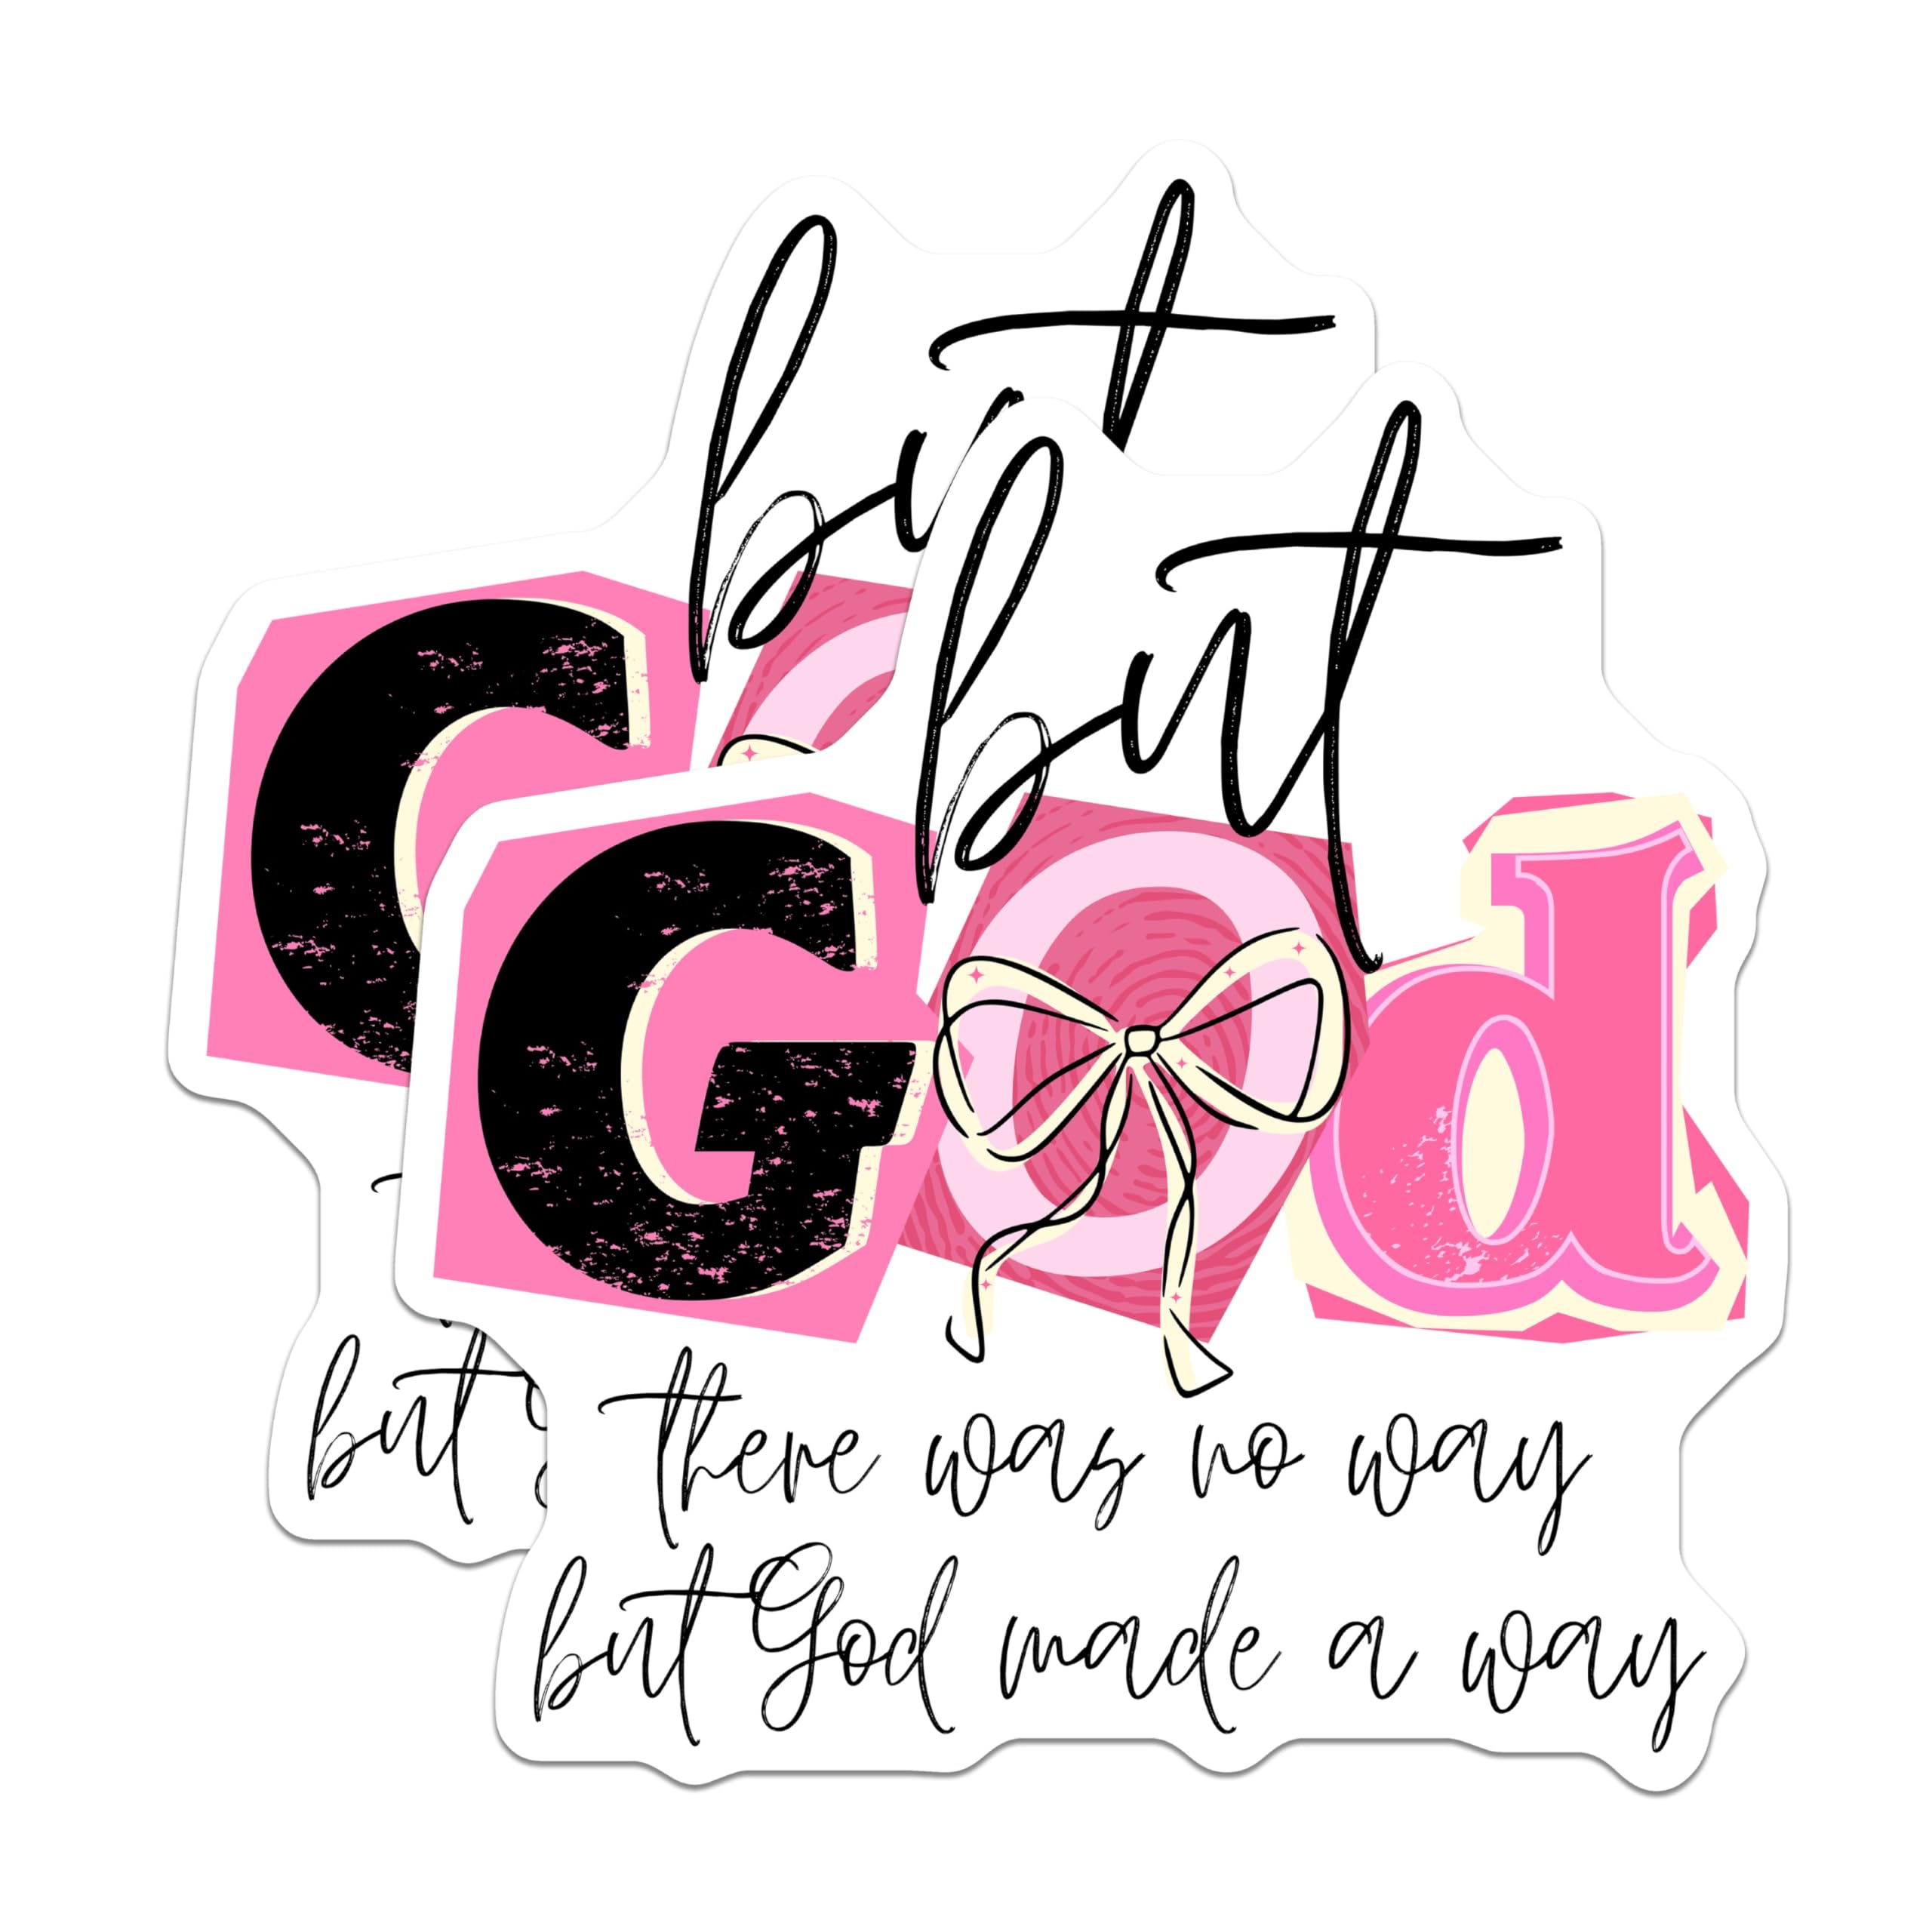 but
God
there was no way
but God made a way
but
G
but